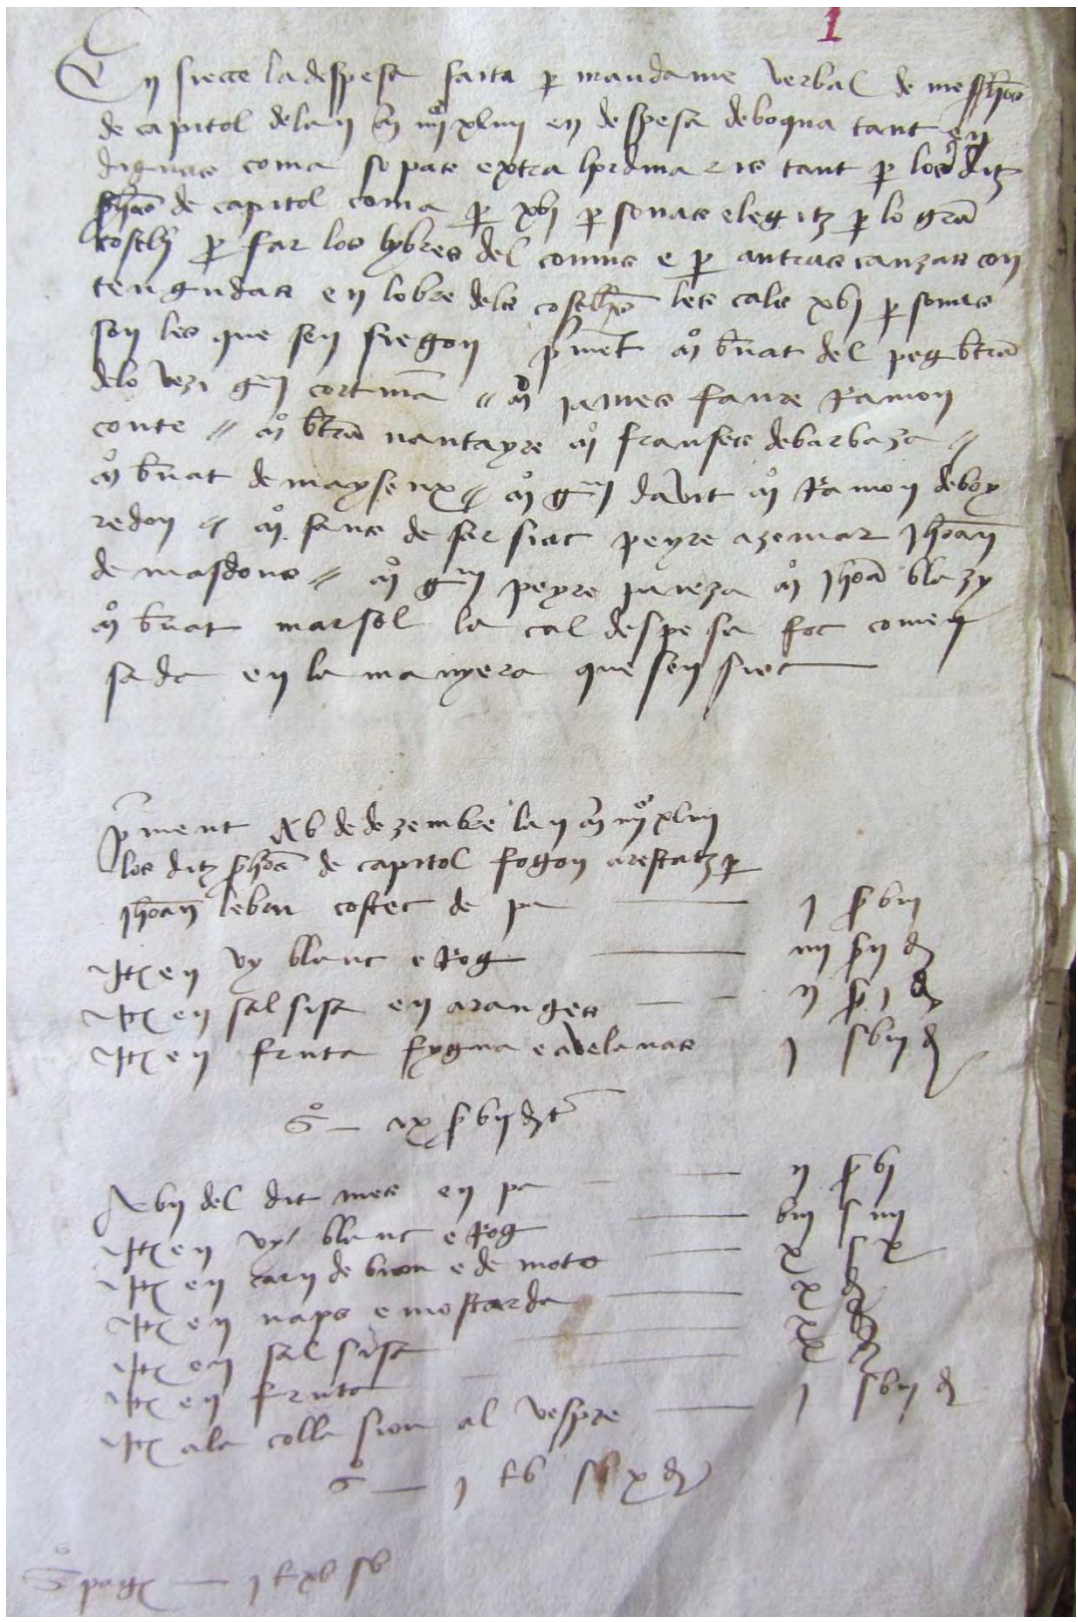 1
En siecc la despesa facta per mandame verbal de messrs
de capitol de lan m iiiic xlviii en despesa de boqua tant en
dignars coma sopars extra hordinaris tant per losditz
srs de capitol coma per xvi personas elegitz per lo gran
coselh per far los lybres del comus e per autras causas con
tengudas en lobre dels coselhs les cals xvi personas
son les que sen siegon prment mo bernat del peg bertran
delo vezi gm cortina // mo james faure Ramon
conte // mo bertran nantayre mo franses de barbaza //
mo bernat de maysenx // mo gm davit mo Ramon de boy
redon // mo sans de sarsiac peyre azemar Jhoan
de masdons // mo gm peyre Jhoan blazy
mo bernat marsol la cal despesa foc comen
sada en la manyera que sen siec
prment xv de dezembre lan m iiiic xlviii
los ditz srs de capitol fogon arestatz per
Jhoan lebru costec de pa — j s viii
Itm en vy blanc e Rog — iiii s ii d
Itm en salsisa en aranges — ii s j d
Itm en fruta fygua e avelanas j s viii d
So — ix s vii d t
xvii del dit mes en pa — ii s vi
Itm en vy blanc e Rog — viii s iiii
Itm en carn de buou e de moto — x s x
Itm en naps e mostarda — x d
Itm en salsisa — xx d
Itm en fruta — xx d
Itm a la collasion al vespre — j s viii d
So — j lb s x d
So pag — j l xv s